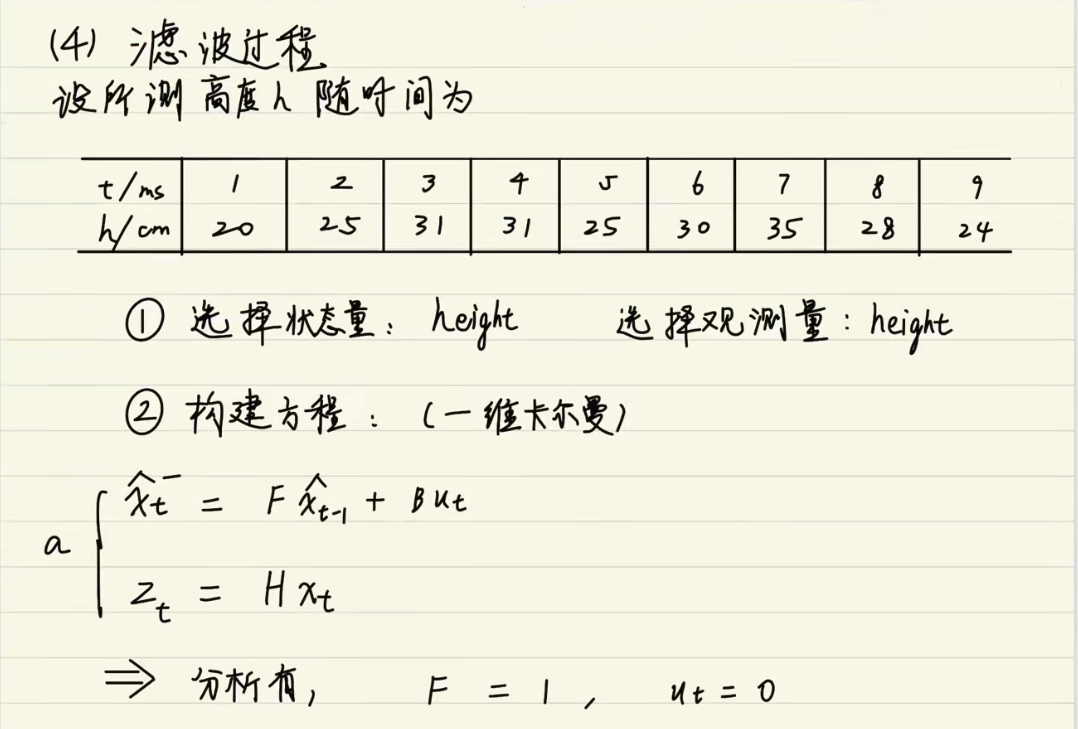 (4) 滤波过程
设所测高度h随时间为
t/ms 1 2 3 4 5 6 7 8 9
h/cm 20 25 31 31 25 30 35 28 24
① 选择状态量：height 选择观测量：height
② 构建方程：（一维卡尔曼）
a { x̂t⁻ = F x̂t-1 + But
zt = Hxt
⇒ 分析有， F = 1 ， ut = 0